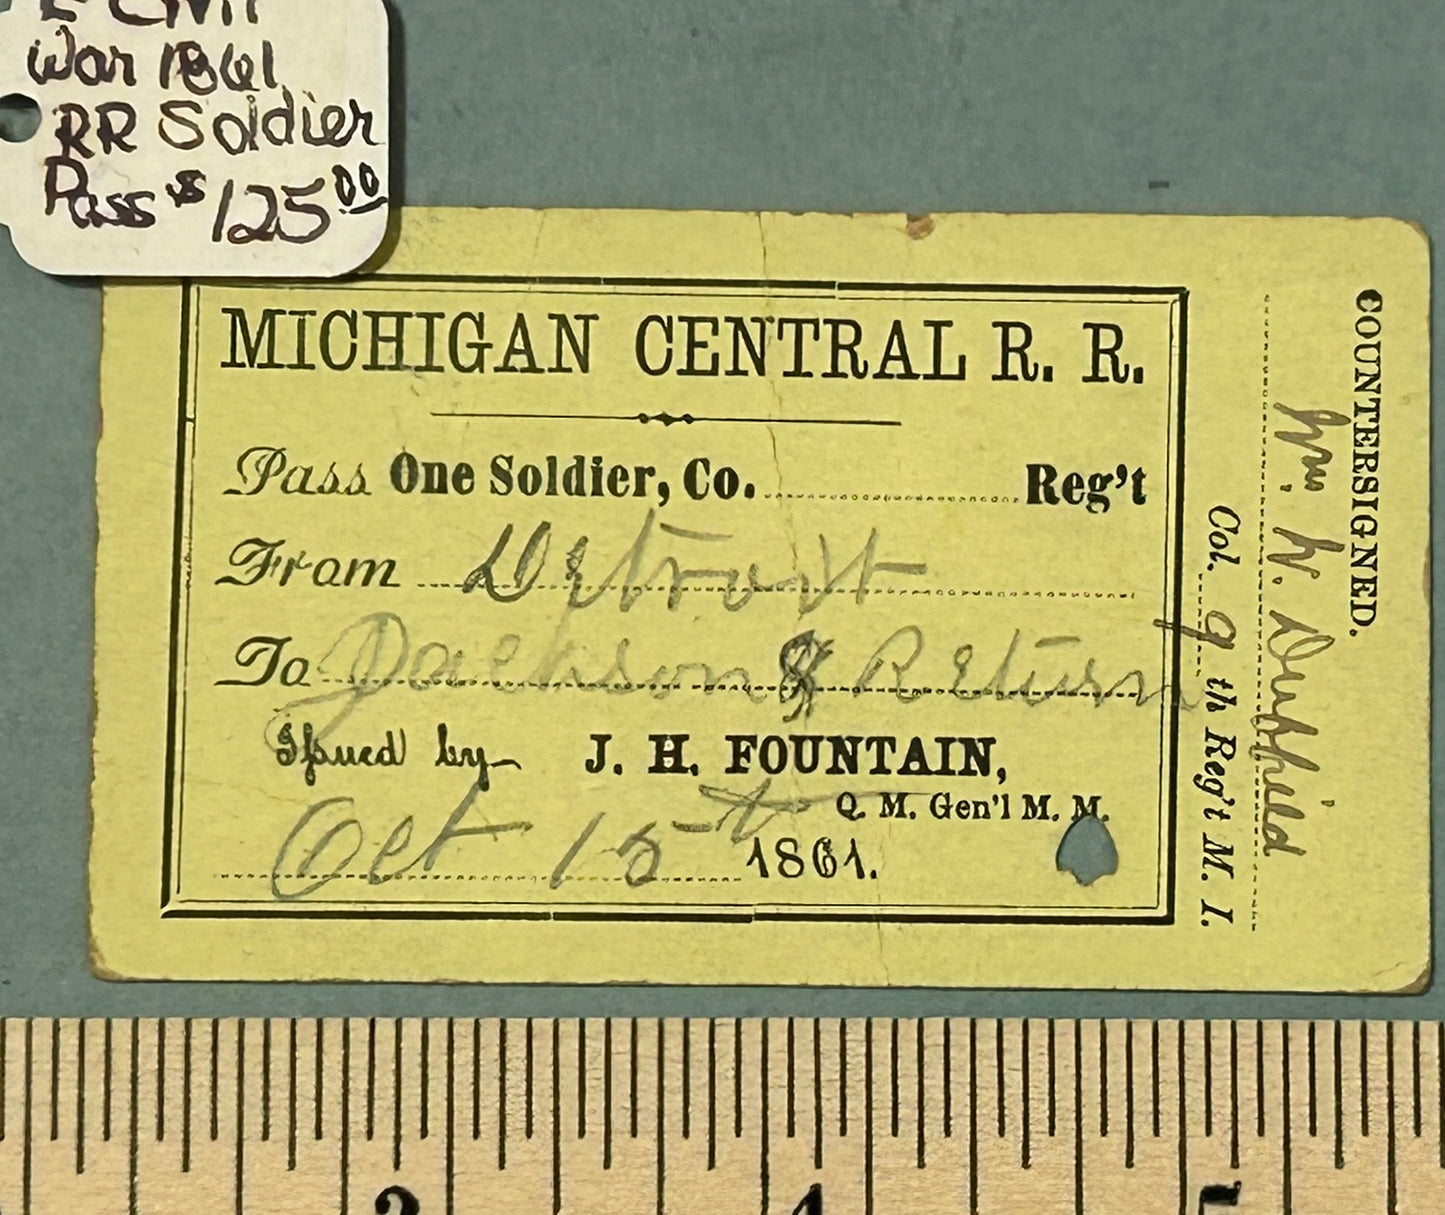 E Civil
War 1861
RR Soldier
Pass $125.00
MICHIGAN CENTRAL R. R.
Pass One Soldier, Co. Reg't
From Detroit
To Jackson & Return
Issued by J. H. FOUNTAIN,
Q. M. Gen'l M. M.
Oct 15 1861.
COUNTERSIGNED.
Wm. W. Duffield
Col. 9 th Reg't M. I.
3
4
5